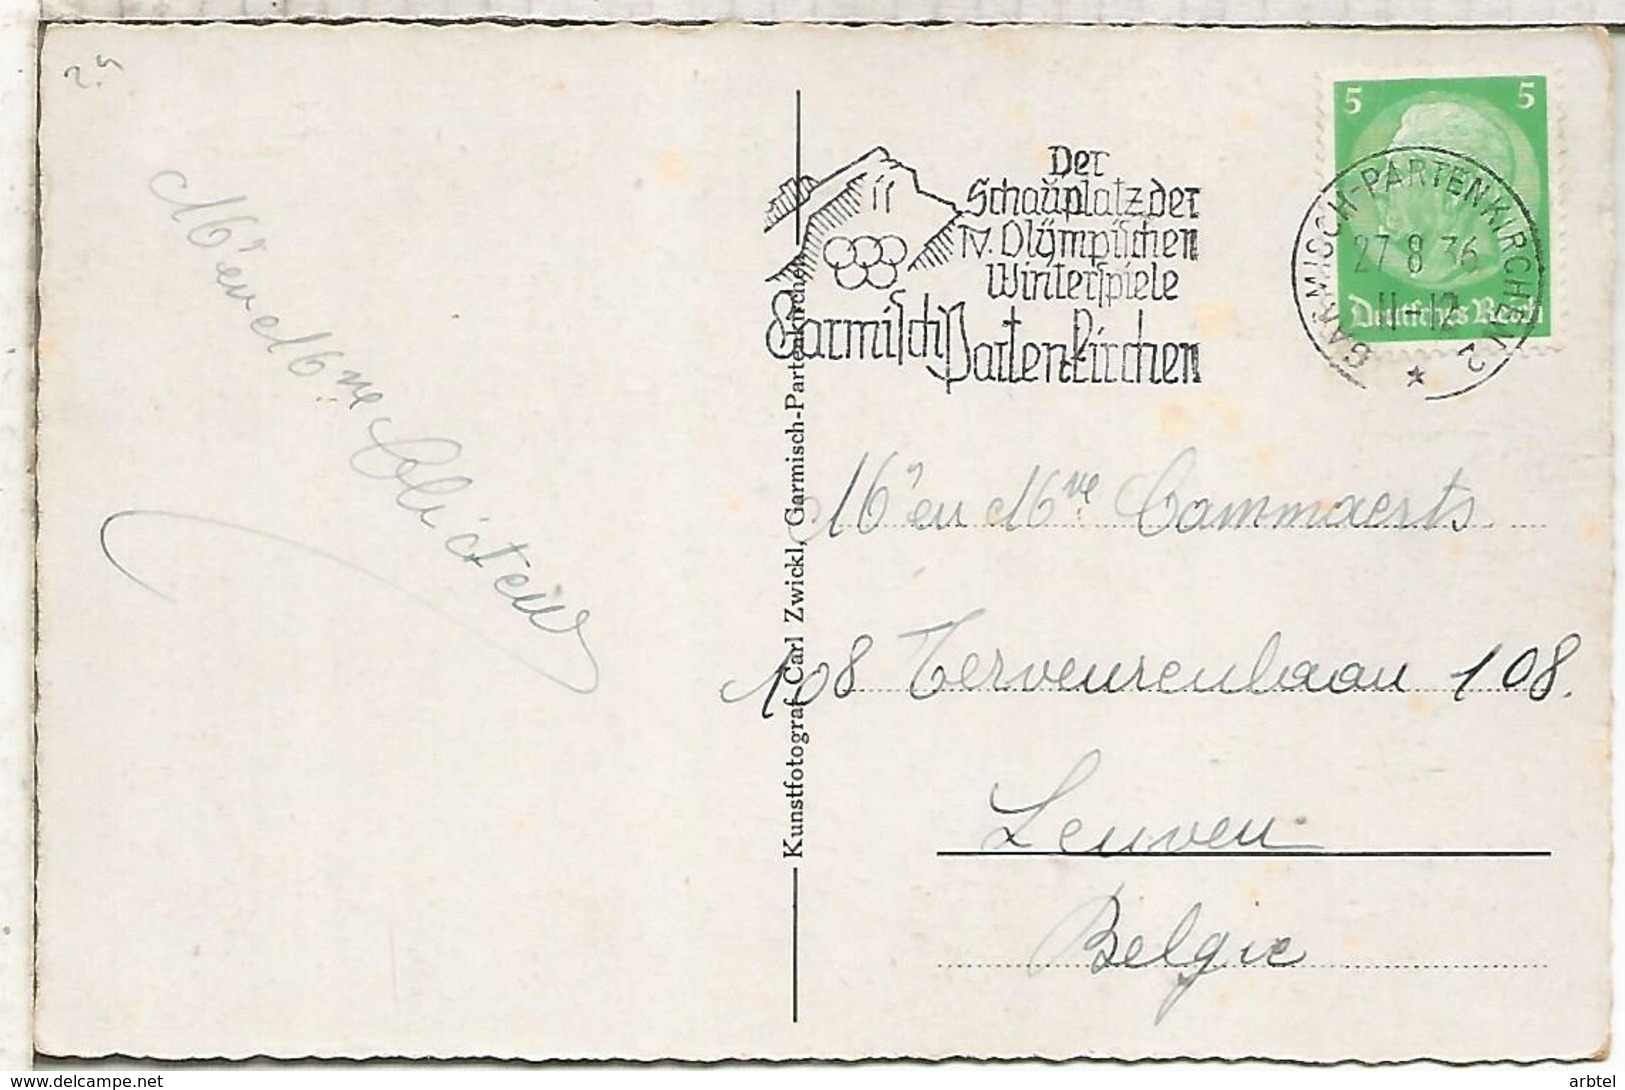 Mr en Mme
5 5
Der
Schauplatz der
IV. Olympischen
Winterspiele
Garmisch Partenkirchen
GARMISCH-PARTENKIRCHEN 2
27 8 36
11-12
Deutsches Reich
Kunstfotograf Carl Zwickl, Garmisch-Partenkirchen
Mr en Mve Cammaerts
108 Terveurenlaan 108.
Leuven
Belgie
www.delcampe.net
arbtel